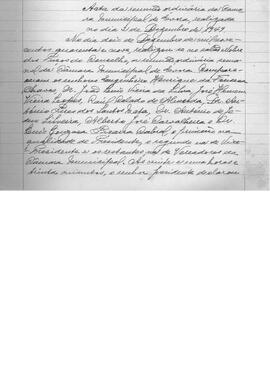 Acta da reunião ordinária da Câma-
ra Municipal de Évora, realizada
no dia 2 de Dezembro de 1949
No dia dois de Dezembro de mil nove-
centos quarenta e nove, realizou-se no salão nobre
dos Paços do Concelho, a reunião ordinária sema-
nal da Câmara Municipal de Évora. Compare-
ceram os senhores Engenheiro Henrique da Fonseca
Chaves, Dr. João Luís Vieira da Silva, José
Vieira Lopes, Raúl de Almeida, Dr. An-
tónio dos Santos, Dr. António de Je-
sus Silveira, Alberto José Carvalheira e Dr.
Luís Pinheiro Cabral, o primeiro na
qualidade de Presidente, o segundo na de Vice-
Presidente e os restantes na de Vereadores da
Câmara Municipal. Às vinte e uma horas e
trinta minutos, o senhor presidente declarou